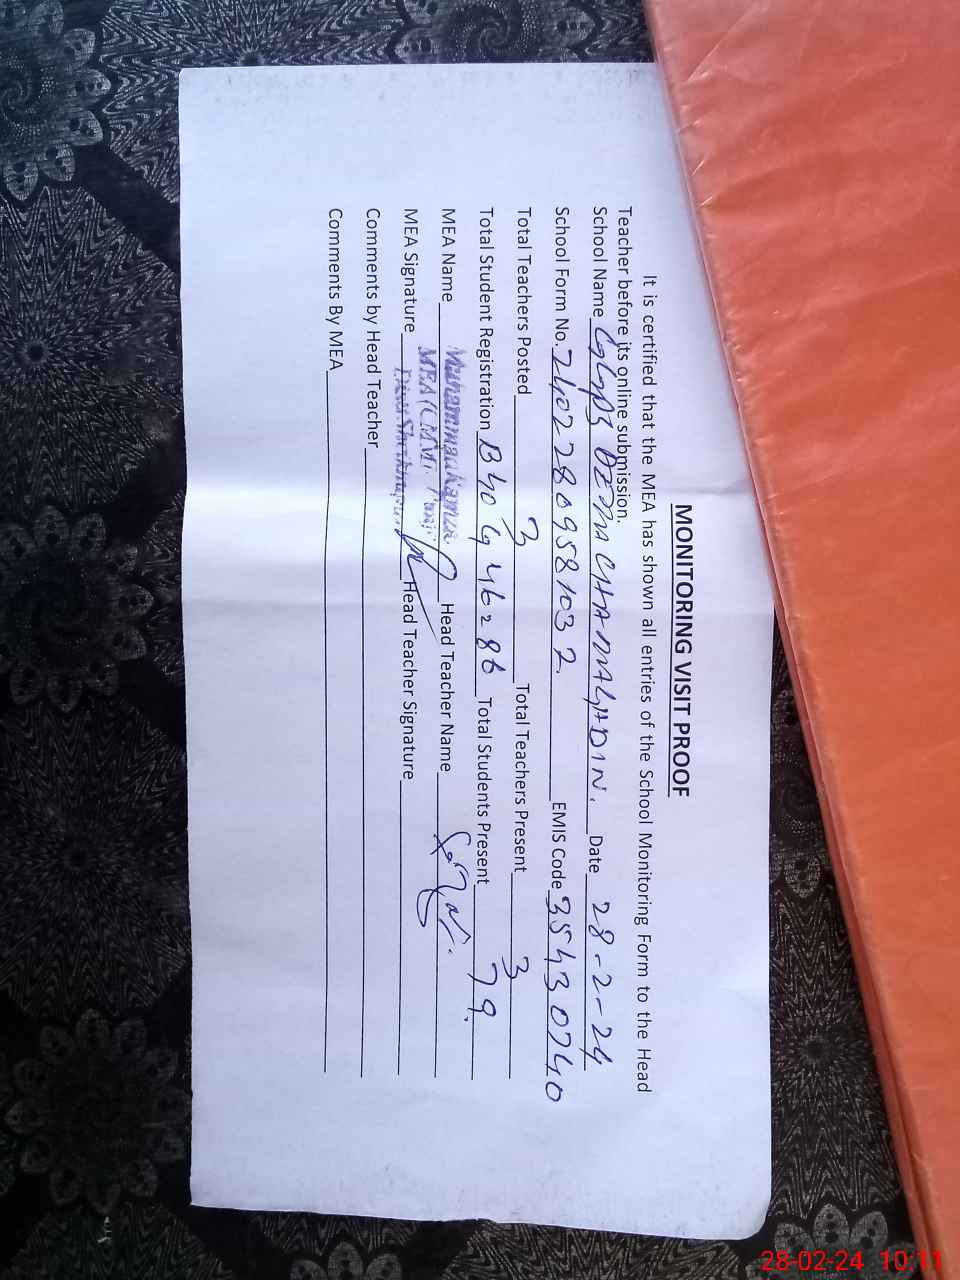 MONITORING VISIT PROOF
It is certified that the MEA has shown all entries of the School Monitoring Form to the Head
Teacher before its online submission.
School Name DERA CHANDALGADIN. Date 28-2-24
School Form No. 24022809581032. EMIS Code 35430240
Total Teachers Posted 3 Total Teachers Present 3
Total Student Registration Total Students Present 79.
MEA Name Muhammad Head Teacher Name
MEA Signature MEA Head Teacher Signature
Comments by Head Teacher
Comments By MEA
28-02-24 10:11